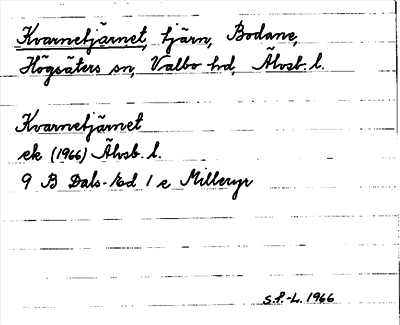 Kvarnetjärnet, tjärn, Bodane,
Högsäters sn, Valbo hd, Älvsb. l.
Kvarnetjärnet
ek (1966) Älvsb. l.
9 B Dals-Ed 1 e Milleryr
S.F.-L. 1966